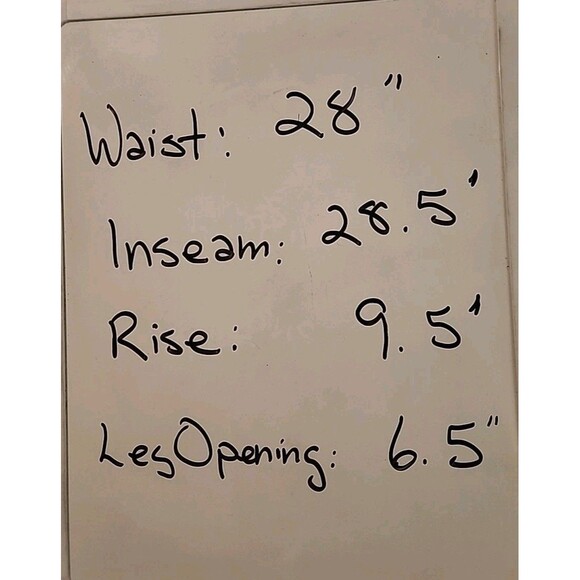 Waist: 28"
Inseam: 28.5'
Rise: 9.5'
Leg Opening: 6.5"